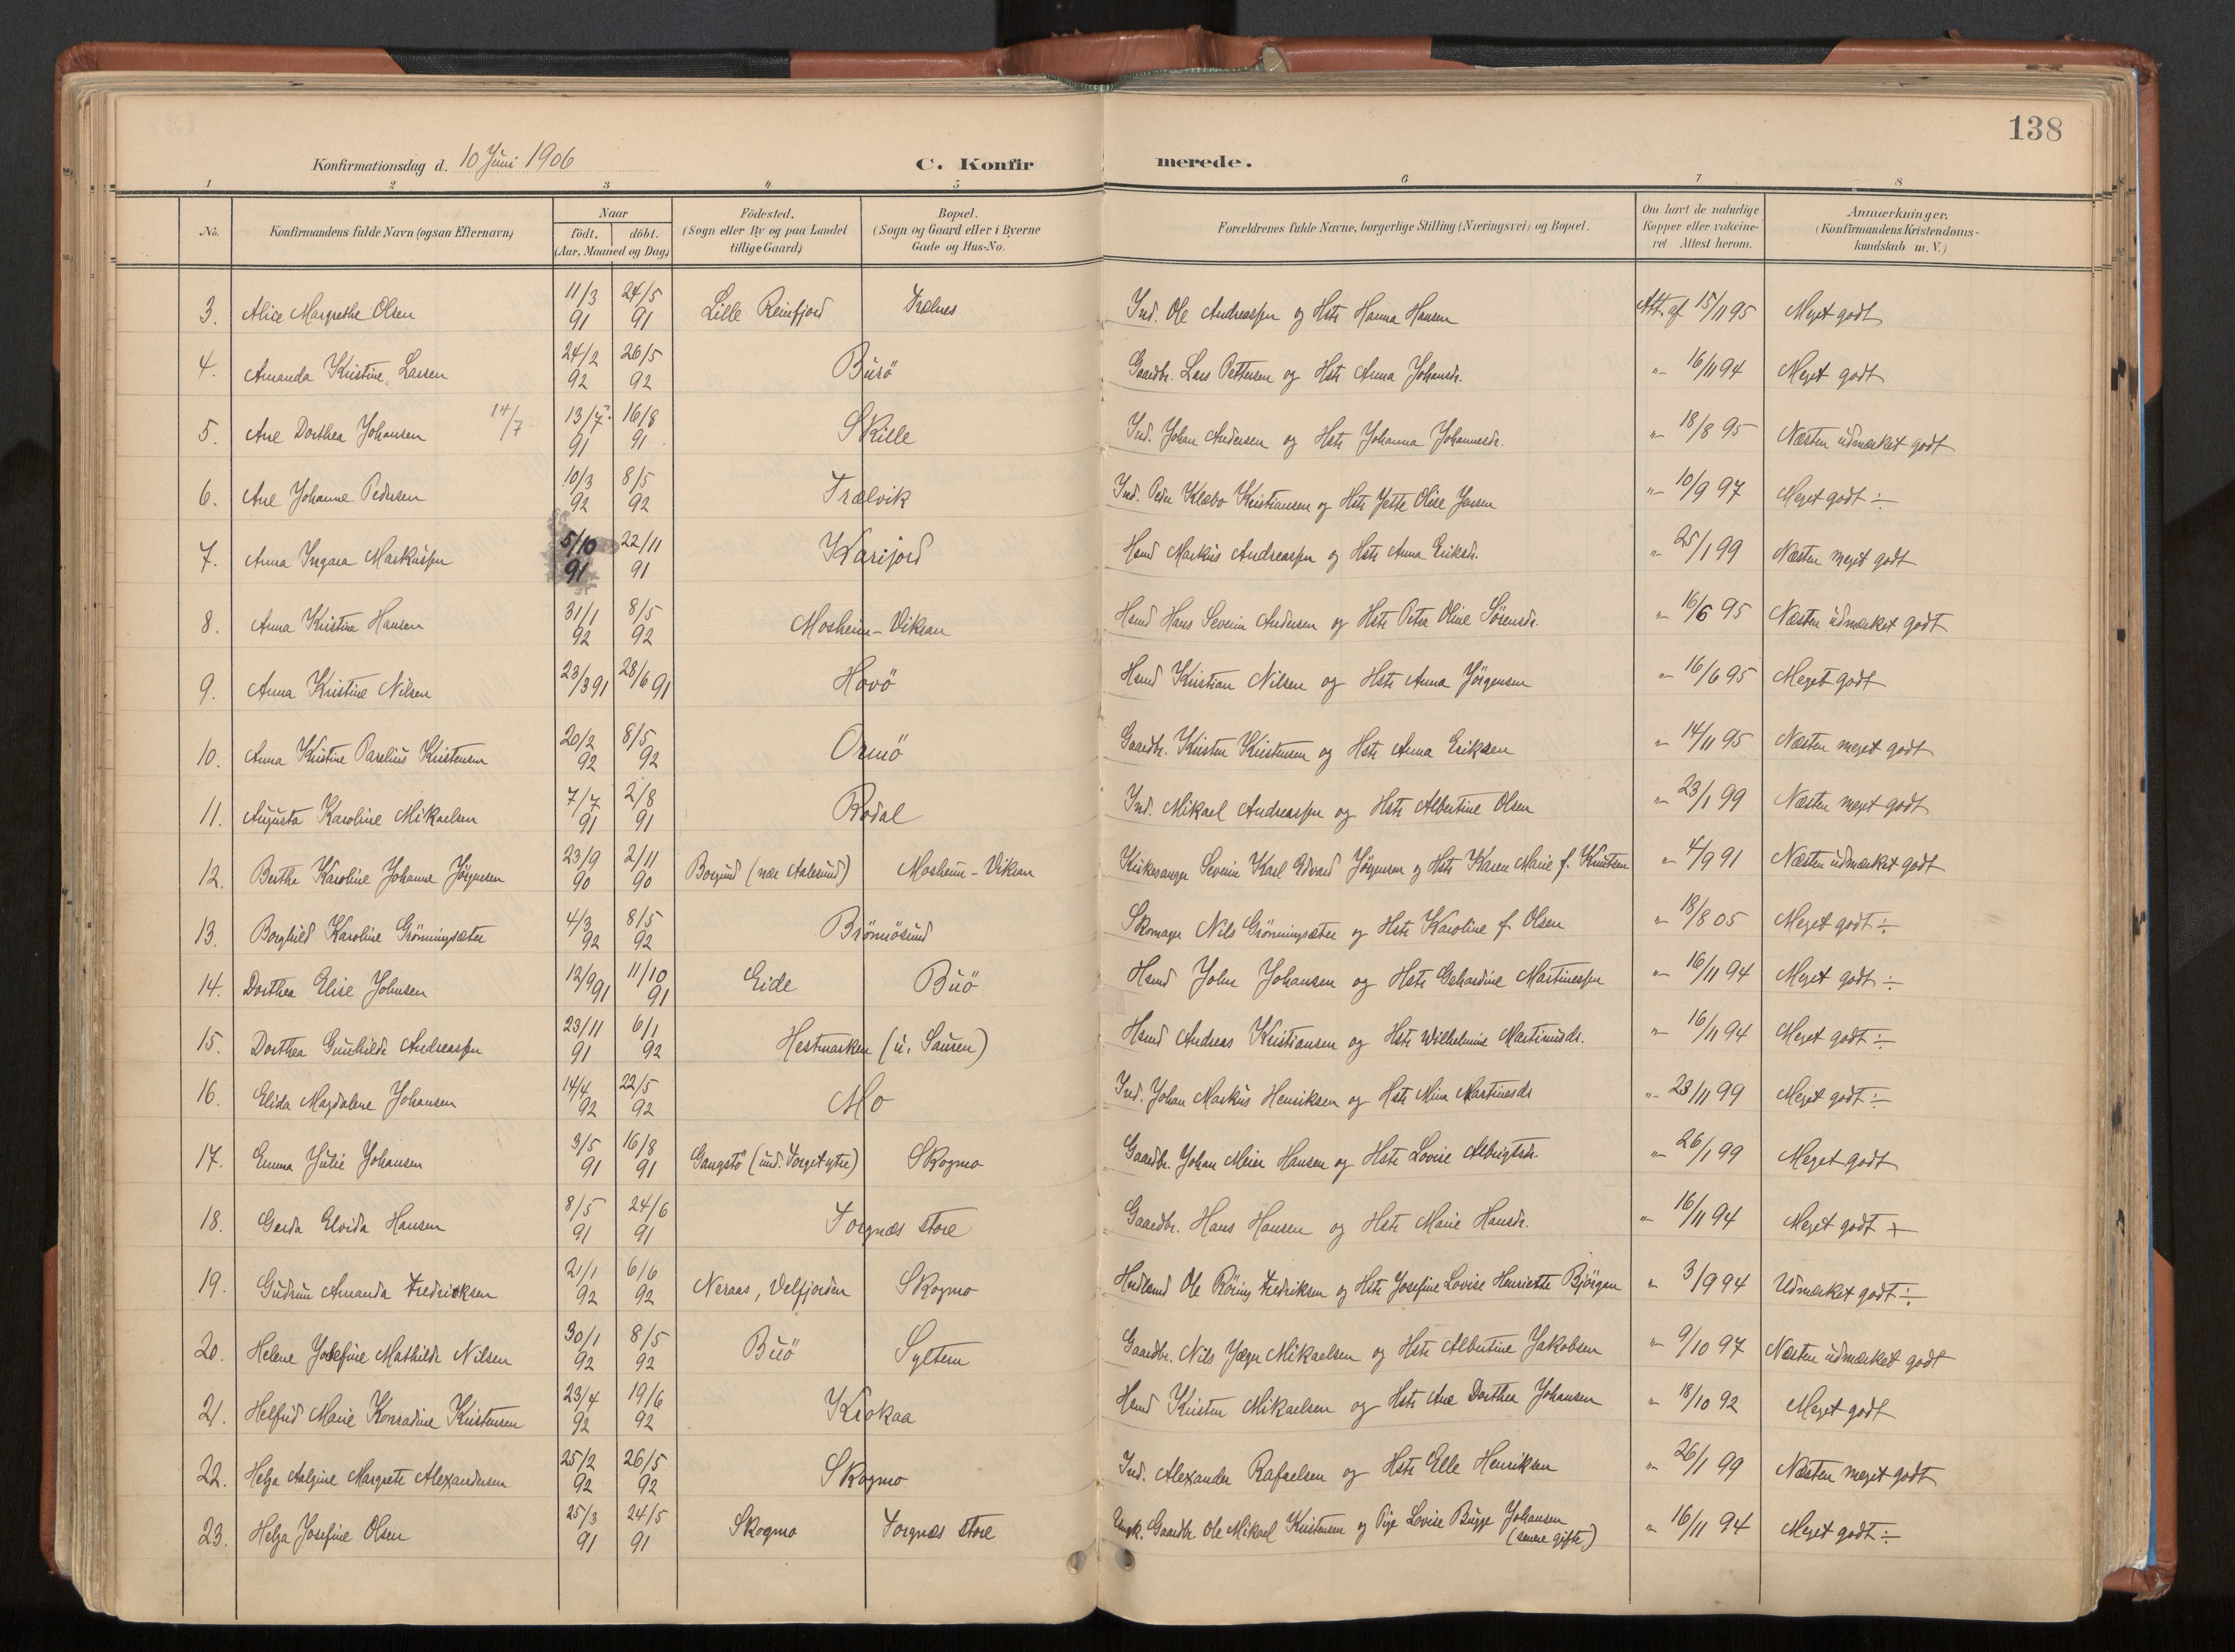 138
Konfirmationsdag d. 10 Juni 1906
C. Konfirmerede.
1 2 3 4 5 6 7 8
No.
Konfirmandens fulde Navn (ogsaa Efternavn)
Naar
födt. döbt.
(Aar, Maaned og Dag)
Födested.
(Sogn eller By og paa Landet
tillige Gaard)
Bopæl.
(Sogn og Gaard eller i Byerne
Gade og Hus-No.
Forældrenes fulde Navne, borgerlige Stilling (Næringsvei) og Bopæl.
Om havt de naturlige
Kopper eller vakcine-
ret Attest herom.
Anmærkninger.
(Konfirmandens Kristendoms-
kundskab m. V.)
3. Alice Margrethe Olsen 11/3 91 24/5 91 Lille Reinfjord Trælnes Ind. Ole Andreassen og Hstr Hanna Hansen Att. af 15/11 95 Meget godt
4. Amanda Kristine Larsen 24/2 92 26/5 92 Burö Gaardbr. Lars Pettersen og Hstr Anna Johansdr. " 16/11 94 Meget godt
5. Ane Dorthea Johansen 14/7 13/7 91 16/8 91 Skille Ind. Johan Andersen og Hstr Johanna Johannesdr. " 18/8 95 Næsten udmærket godt
6. Ane Johanne Pedersen 10/3 92 8/5 92 Trælvik Ind. Peder Klæbo Kristiansen og Hstr Jette Olise Jensen " 10/9 97 Meget godt ÷
7. Anna Ingara Markussen 5/10 91 22/11 91 Karijord Hsmd Markus Andreassen og Hstr Anna Eriksdr. " 25/1 99 Næsten meget godt
8. Anna Kristine Hansen 31/1 92 8/5 92 Mosheim-Vikran Hsmd Hans Severin Andersen og Hstr Petra Oline Sörensdr. " 16/6 95 Næsten udmærket godt
9. Anna Kristine Nilsen 23/3 91 28/6 91 Horö Hsmd Kristian Nilsen og Hstr Anna Jörgensen " 16/6 95 Meget godt
10. Anna Kristine Parelius Kristensen 20/2 92 8/5 92 Ormö Gaardbr. Kristen Kristensen og Hstr Anna Eriksen " 14/11 95 Næsten meget godt
11. Augusta Karoline Mikaelsen 7/7 91 2/8 91 Rodal Ind. Mikael Andreassen og Hstr Albertine Olsen " 23/1 99 Næsten meget godt
12. Berthe Karoline Johanne Jörgensen 23/9 90 2/11 90 Borgund (nær Aalesund) Mosheim-Vikran Kirkesanger Severin Karl Edvard Jörgensen og Hstr Karen Marie f. Knutsen " 4/9 91 Næsten udmærket godt
13. Borghild Karoline Grönningsæter 4/3 92 8/5 92 Brönnösund Skomager Nils Grönningsæter og Hstr Karoline f. Olsen " 18/8 05 Meget godt ÷
14. Dorthea Elise Johnsen 12/9 91 11/10 91 Eide Buö Hsmd John Johansen og Hstr Gehardine Martinessen " 16/11 94 Meget godt ÷
15. Dorthea Gunhilde Andreassen 23/11 91 6/1 92 Hestmarken (u. Sauren) Hsmd Andreas Kristiansen og Hstr Wilhelmine Martinusdr. " 16/11 94 Meget godt ÷
16. Elida Magdalene Johansen 14/4 92 22/5 92 Mo Ind. Johan Markus Henriksen og Hstr Mina Martinesdr " 23/11 99 Meget godt ÷
17. Emma Julie Johansen 3/5 91 16/8 91 Gangstö (und. Torget ytre) Skogmo Gaardbr. Johan Meier Hansen og Hstr Lovise Albrigtsdr. " 26/1 99 Meget godt
18. Gerda Elvida Hansen 8/5 91 24/6 91 Torgnæs store Gaardbr. Hans Hansen og Hstr Marie Hansdr. " 16/11 94 Meget godt +
19. Gudrun Amanda Fredriksen 2/1 92 6/6 92 Neraas, Velfjorden Skogmo Hndlsmd Ole Röring Fredriksen og Hstr Josefine Lovise Henriette Björgan " 3/9 94 Udmærket godt ÷
20. Helene Josefine Mathilde Nilsen 30/1 92 8/5 92 Buö Syltern Gaardbr. Nils Jæger Mikaelsen og Hstr Albertine Jakobsen " 9/10 97 Næsten udmærket godt
21. Helfrid Marie Konradine Kristensen 23/4 92 19/6 92 Krokaa Hsmd Kristen Mikaelsen og Hstr Ane Dorthea Johansen " 18/10 92 Meget godt
22. Helga Aalgine Margrete Alexandersen 25/2 92 26/5 92 Skogmo Ind. Alexander Rafaelsen og Hstr Elle Henriksen " 26/1 99 Næsten meget godt
23. Helga Josefine Olsen 25/3 91 24/5 91 Skogmo Torgnæs store Ungk. Gaardbr. Ole Mikael Kristensen og Pige Lovise Bugge Johansen (senere gifte) " 16/11 94 Meget godt ÷